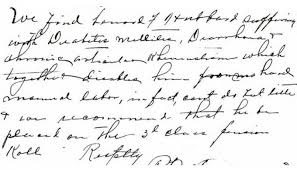 We find Leonard F Hubbard suffering
with Diabetes Mellitis, Diarrhoea &
chronic articular Rheumatism which
together disables him from hard
manual labor, in fact, cant do but little
& we recommend that he be
placed on the 3d class pension
Roll. Respttly